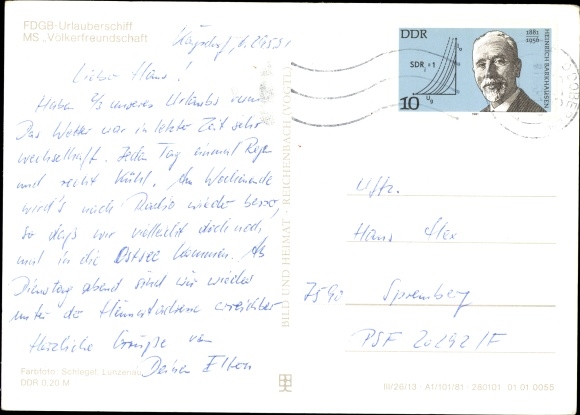 FDGB-Urlauberschiff
MS „Völkerfreundschaft
Lieber Hans!
Haben 2/3 unseres Urlaubs rum.
Das Wetter war in letzter Zeit sehr
wechselhaft. Jeden Tag einmal Regen
und recht kühl. Am Wochenende
wird's nach Radio wieder besser,
so daß wir vielleicht doch noch
mal in die Ostsee kommen. Ab
Dienstag abend sind wir wieder
unter der Heimatadresse erreichbar
Herzliche Grüße von
Deinen Eltern
Farbfoto: Schlegel, Lunzenau
DDR 0,20 M
BILD UND HEIMAT · REICHENBACH (VOGTL)
DDR
SDR
10
1881
1956
HEINRICH BARKHAUSEN
Uffz.
Hans Alex
7590 Spremberg
PSF 20292/F
III/26/13 · A1/101/81 280101 01 01 0055